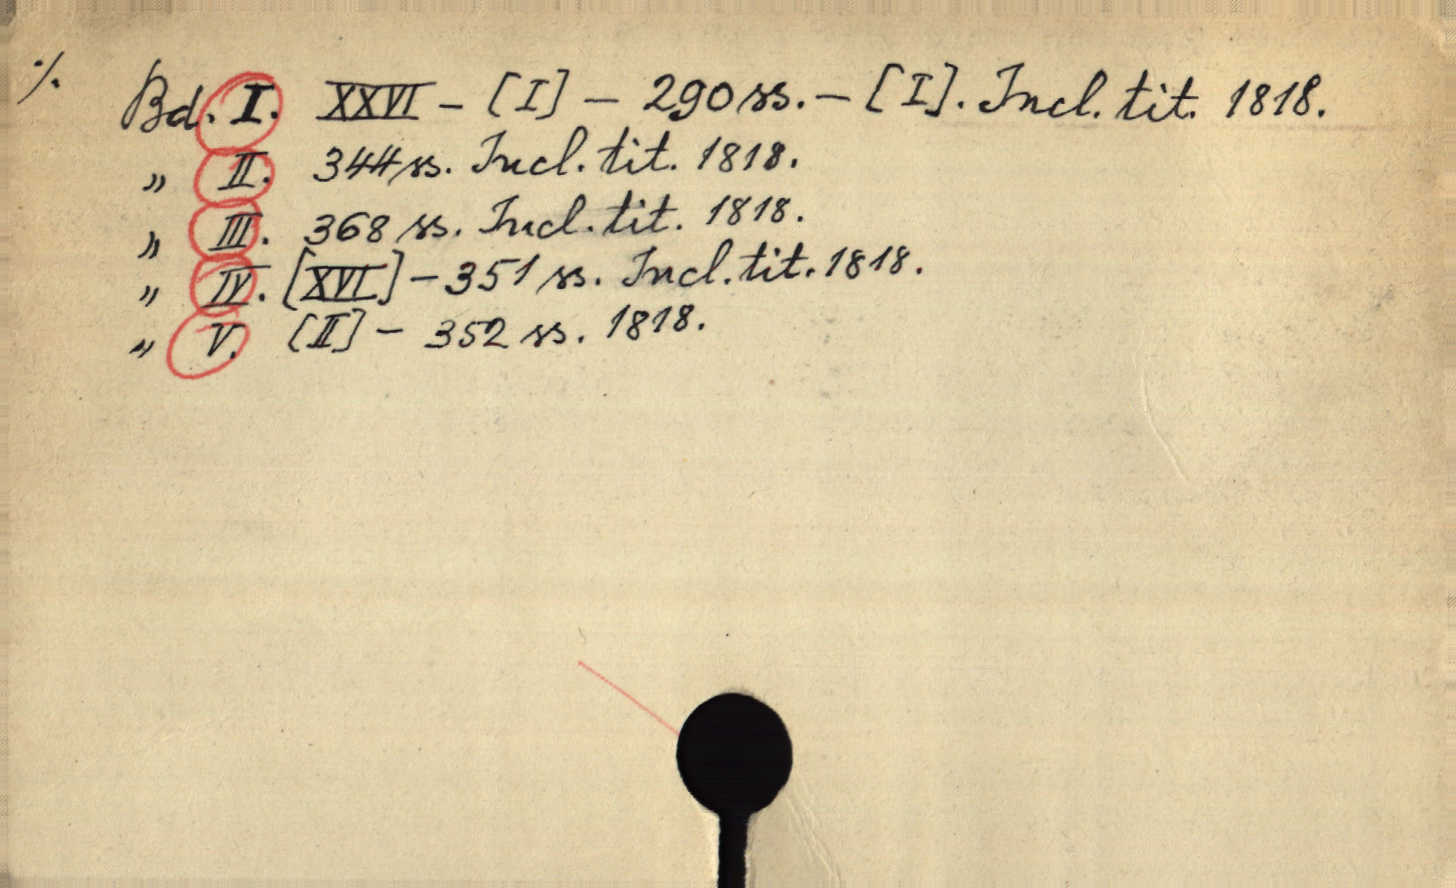 ./. Bd. I. XXVI - [I] - 290 ss. - [I]. Incl. tit. 1818.
„ II. 344 ss. Incl. tit. 1818.
„ III. 368 ss. Incl. tit. 1818.
„ IV. [XVI] - 351 ss. Incl. tit. 1818.
„ V. [II] - 352 ss. 1818.